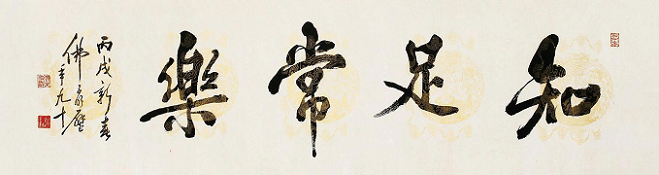 知足常樂
丙戌新春
佛
年九十